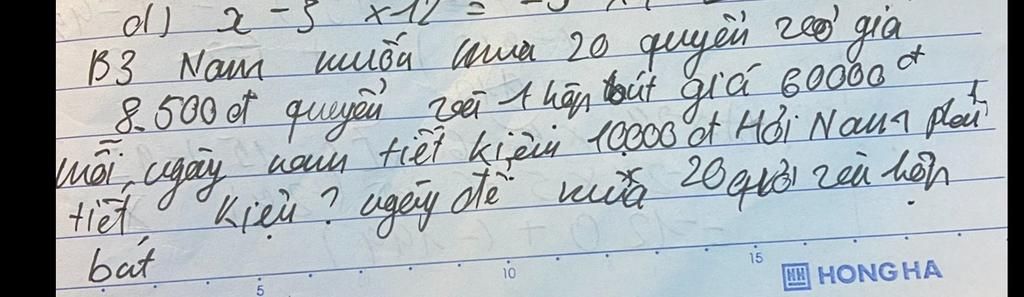 d) x - 5 x 12 =
B3 Nam muốn mua 20 quyển vở giá
8.500đ quyển với 1 hộp bút giá 60000đ
mỗi ngày nam tiết kiệm 10000đ Hỏi Nam phải
tiết kiệm ? ngày để mua 20 quyển và hộp
bút
5 10 15
HH HONG HA